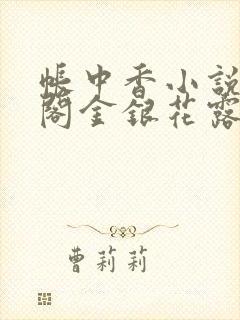 帳中香小說
閣金銀花露
曹莉莉